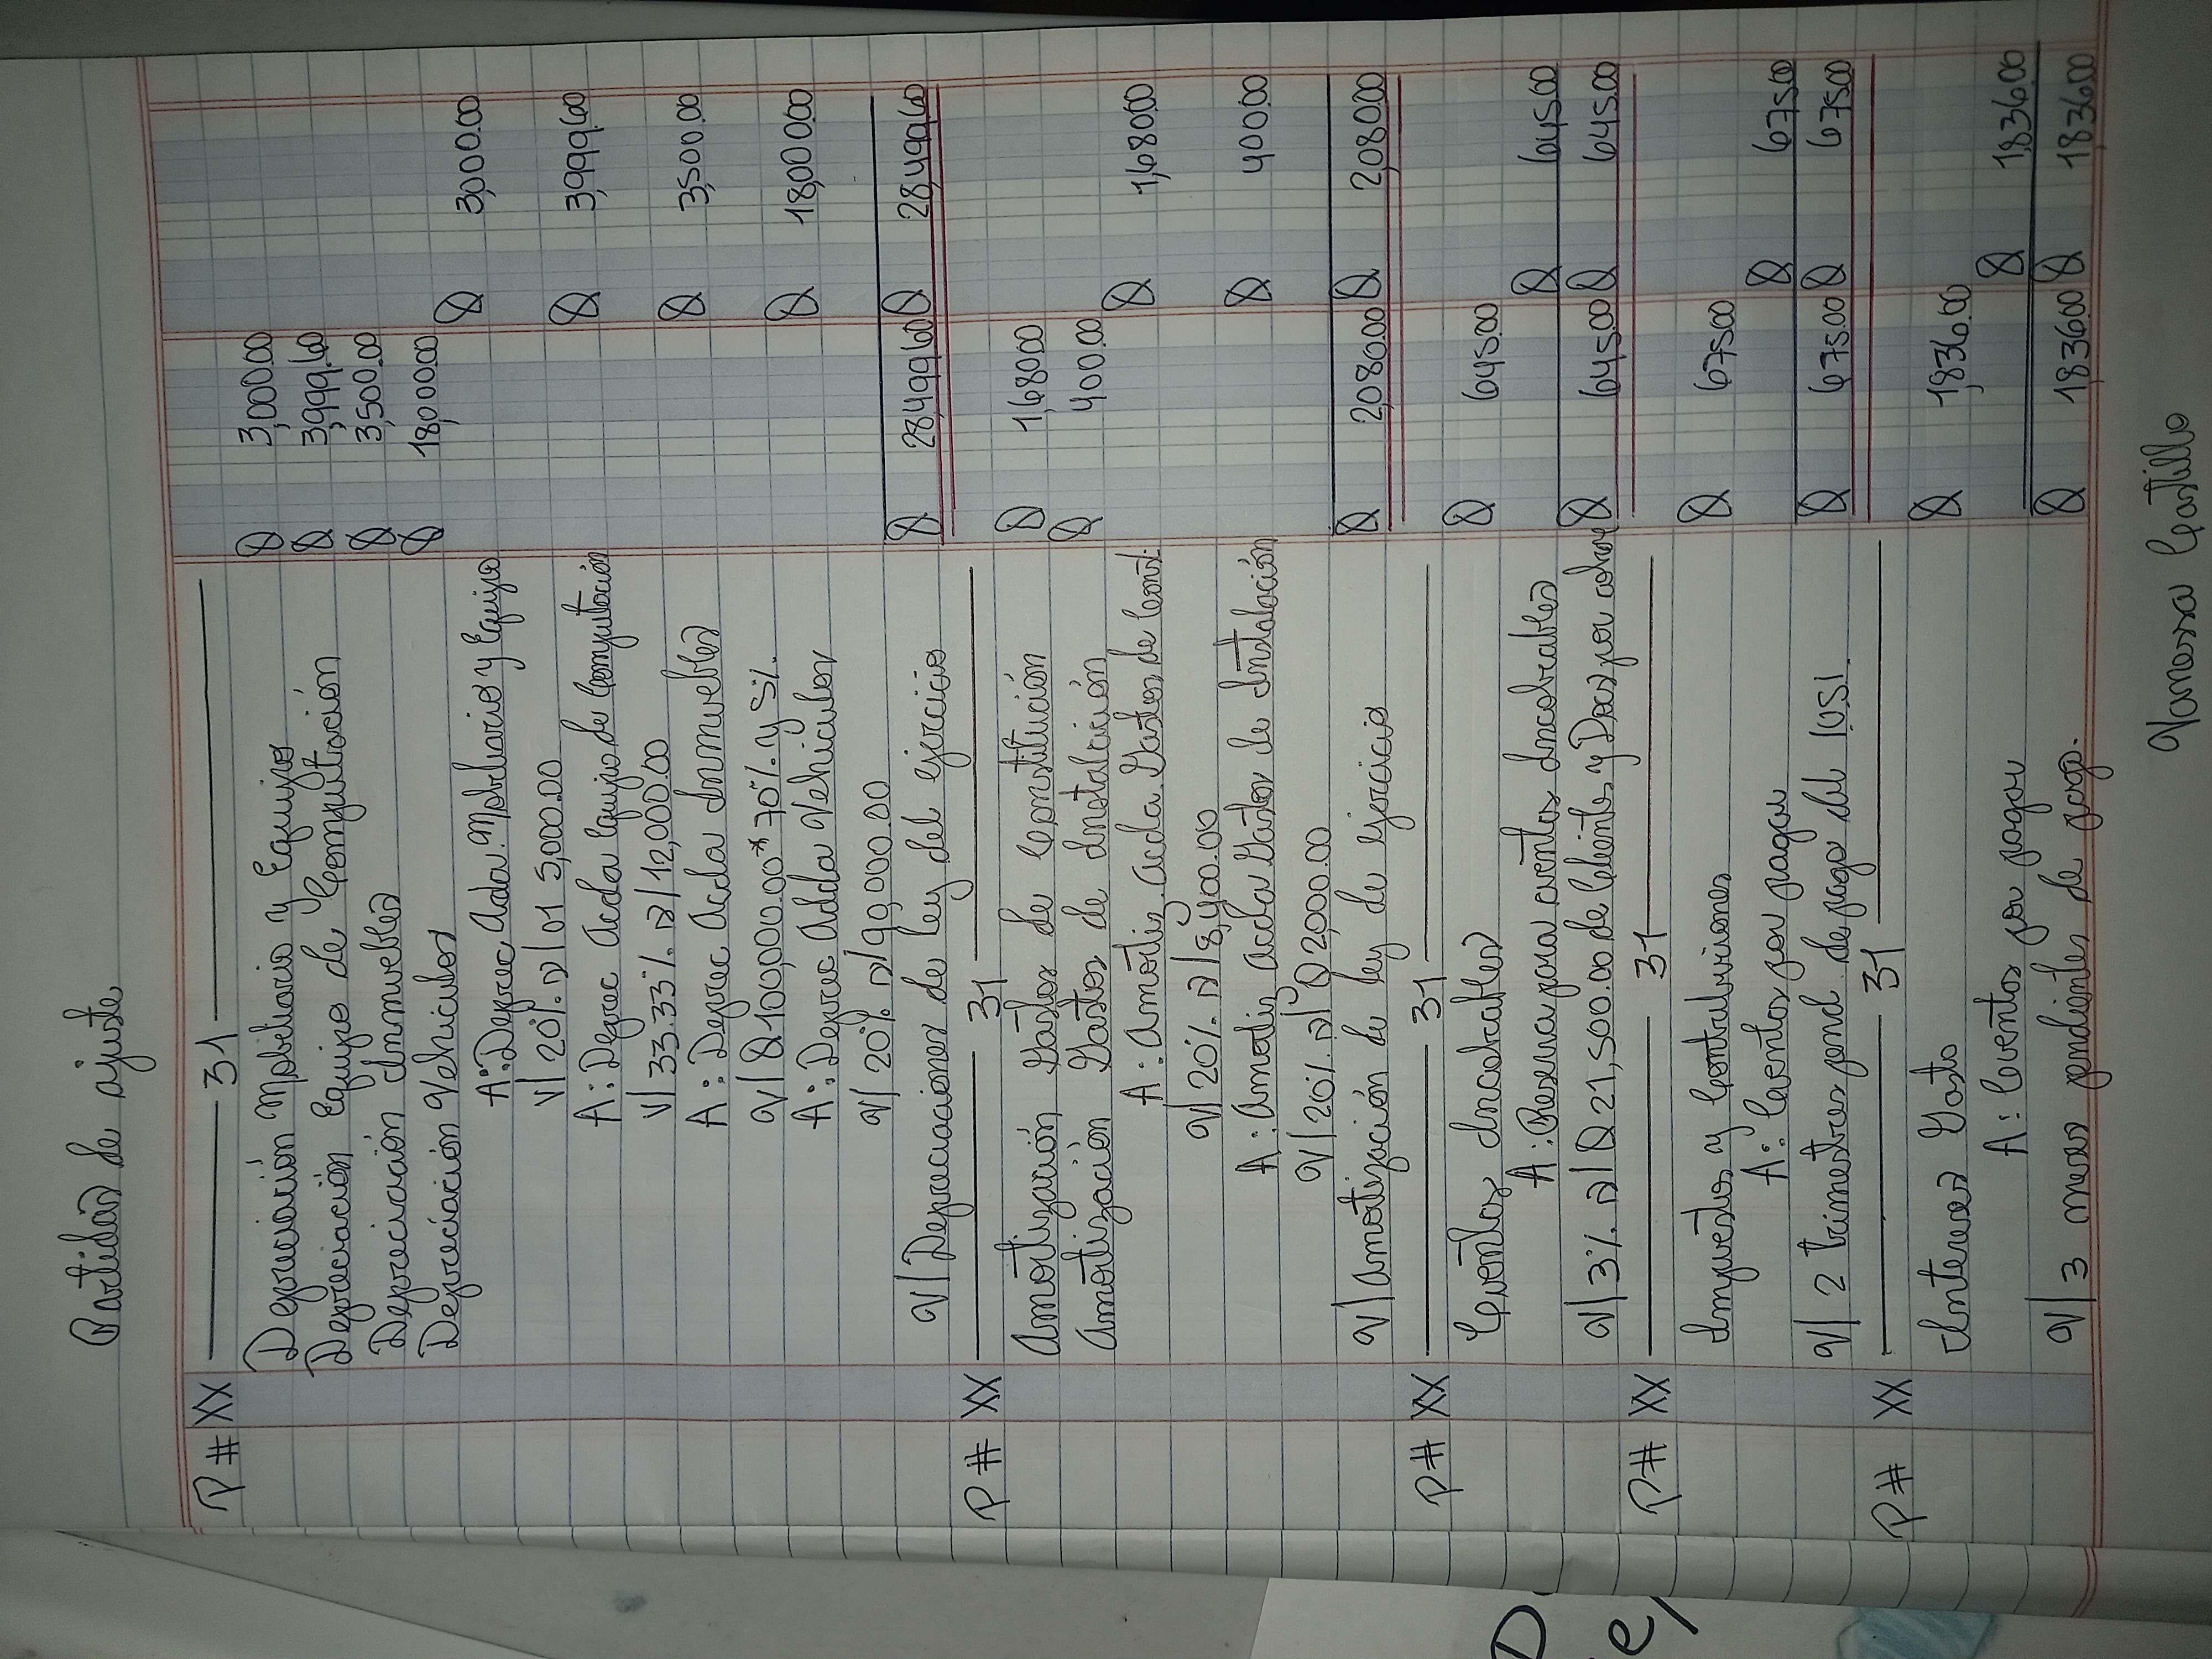 Partidas de ajuste
P# XX 31
Depreciación Mobiliario y Equipo Q 3,000.00
Depreciación Equipo de Computación Q 3,999.60
Depreciación Inmuebles Q 3,500.00
Depreciación Vehiculos Q 18,000.00
A: Deprec Acda. Mobiliario y Equipo Q 3,000.00
V/20%. s/ 01 5,000.00
A: Deprec Acda Equipo de Computación Q 3,999.60
V/33.33%. s/12,000.00
A: Deprec Acda Inmuebles Q 3,500.00
V/Q 100,000.00*70%. y 5%.
A: Deprec Adda Vehiculos Q 18,000.00
V/20%. s/90,000.00
V/Depreciaciones de ley del ejercicio Q 28,499.60 Q 28,499.60
P# XX 31
Amortización Gastos de Constitución Q 1,680.00
Amotización Gastos de Instalación Q 400.00
A: Amotiz. acda. Gastos de Const. Q 1,680.00
V/20%. s/8,400.00
A: Amotiz acda Gastos de Instalación Q 400.00
V/20%. s/ Q 2,000.00
V/Amotización de ley de ejercicio Q 2,080.00 Q 2,080.00
P# XX 31
Cuentas Incobrables Q 645.00
A: Reserva para cuentas Incobrables Q 645.00
V/3%. s/Q 21,500.00 de Clientes y Docs por cobrar Q 645.00 Q 645.00
P# XX 31
Impuestos y Contribuciones Q 675.00
A: Cuentas por pagar Q 675.00
V/ 2 trimestres pend de pago del IUSI. Q 675.00 Q 675.00
P# XX 31
Intereses Gasto Q 1,836.00
A: Cuentas por pagar Q 1,836.00
V/ 3 meses pendientes de pago. Q 1,836.00 Q 1,836.00
Vanessa Castillo
D
e